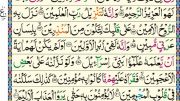 لَهُوَ الْعَزِيزُ الرَّحِيمُ ۝ وَإِنَّهُ لَتَنْزِيلُ رَبِّ الْعٰلَمِينَ ۝ نَزَلَ بِهِ
الرُّوحُ الْأَمِينُ ۝ عَلٰى قَلْبِكَ لِتَكُونَ مِنَ الْمُنْذِرِينَ ۝ بِلِسَانٍ
عَرَبِيٍّ مُبِينٍ ۝ وَإِنَّهُ لَفِي زُبُرِ الْأَوَّلِينَ ۝ أَوَلَمْ يَكُنْ لَهُمْ اٰيَةً
أَنْ يَعْلَمَهُ عُلَمٰٓؤُا بَنِي إِسْرَاءِيلَ ۝ وَلَوْ نَزَّلْنٰهُ عَلٰى بَعْضِ
الْأَعْجَمِينَ ۝ فَقَرَأَهُ عَلَيْهِمْ مَا كَانُوا بِهِ مُؤْمِنِينَ ۝ كَذٰلِكَ سَلَكْنٰهُ